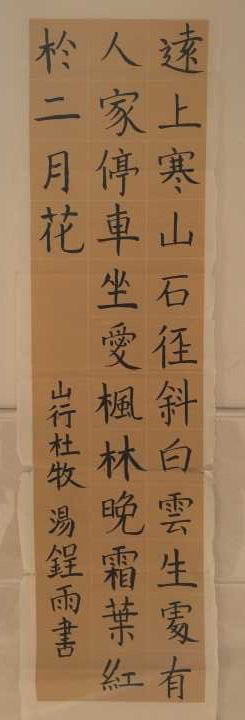 遠上寒山石徑斜白雲生處有
人家停車坐愛楓林晚霜葉紅
於二月花
山行杜牧 湯鋥雨書